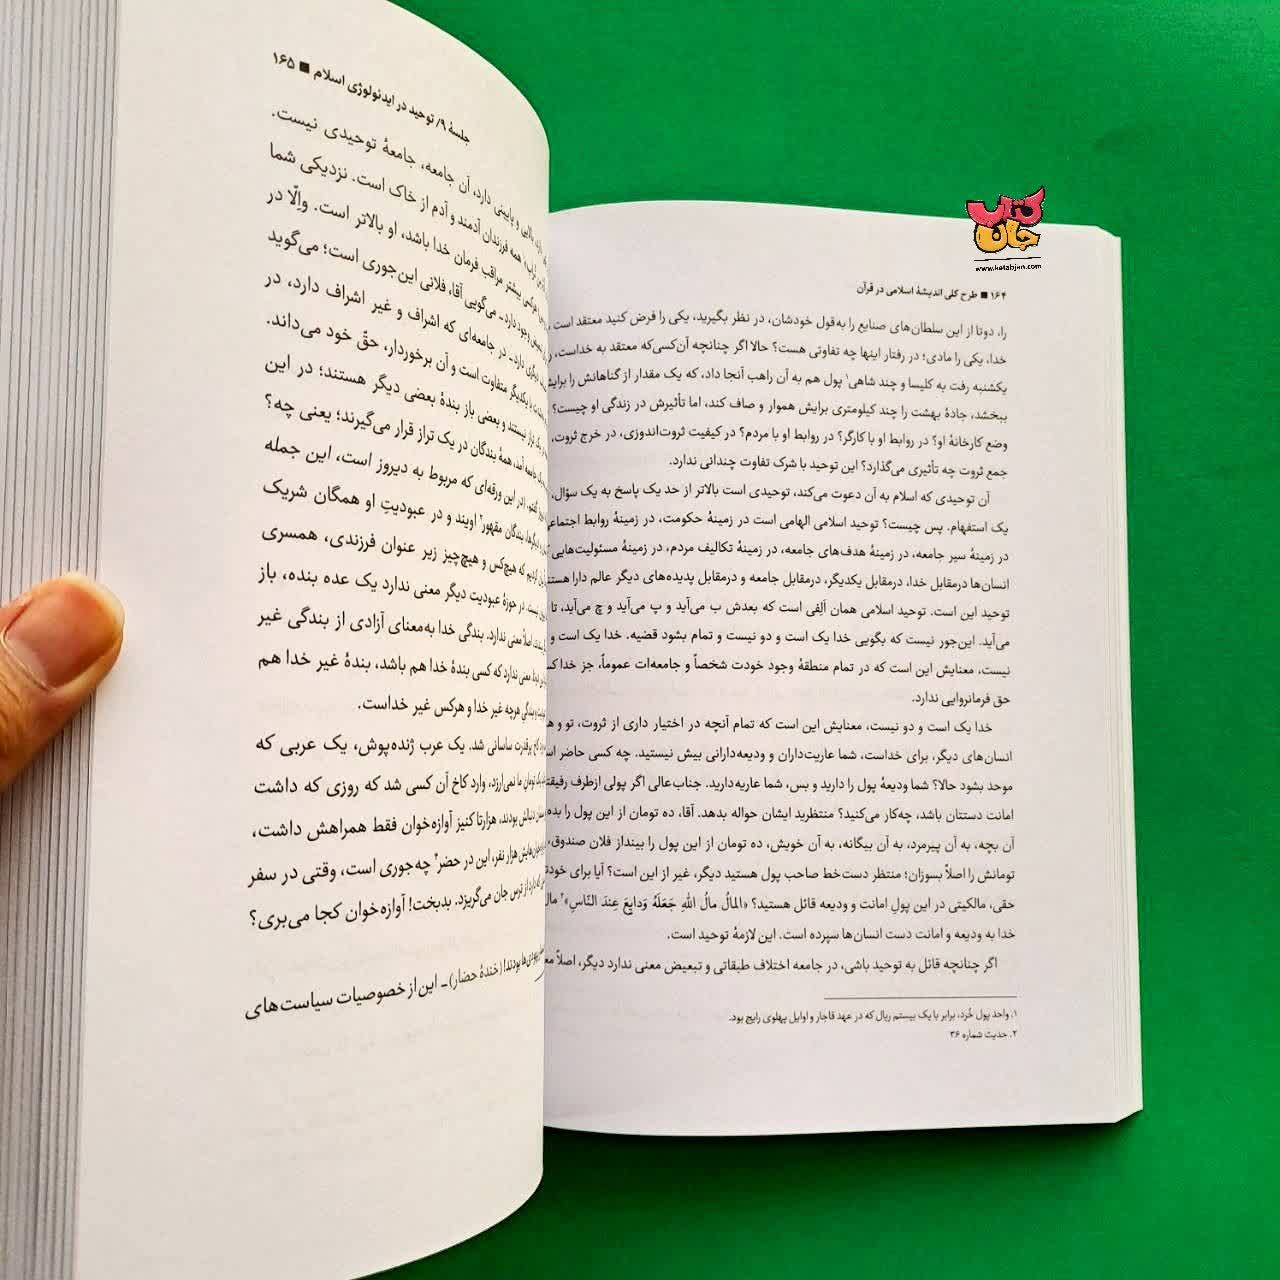 کتاب جان
www.ketabjan.com
۱۶۴ ■ طرح کلی اندیشهٔ اسلامی در قرآن
را، دوتا از این سلطان‌های صنایع را به‌قول خودشان، در نظر بگیرید، یکی را فرض کنید معتقد است
خدا، یکی را مادی؛ در رفتار اینها چه تفاوتی هست؟ حالا اگر چنانچه آن‌کسی‌که معتقد به خداست،
یکشنبه رفت به کلیسا و چند شاهی۱ پول هم به آن راهب آنجا داد، که یک مقدار از گناهانش را برایش
ببخشد، جادهٔ بهشت را چند کیلومتری برایش هموار و صاف کند، اما تأثیرش در زندگی او چیست؟
وضع کارخانهٔ او؟ در روابط او با کارگر؟ در روابط او با مردم؟ در کیفیت ثروت‌اندوزی، در خرج ثروت،
جمع ثروت چه تأثیری می‌گذارد؟ این توحید با شرک تفاوت چندانی ندارد.
آن توحیدی که اسلام به آن دعوت می‌کند، توحیدی است بالاتر از حد یک پاسخ به یک سؤال،
یک استفهام. پس چیست؟ توحید اسلامی الهامی است در زمینهٔ حکومت، در زمینهٔ روابط
در زمینهٔ سیر جامعه، در زمینهٔ هدف‌های جامعه، در زمینهٔ تکالیف مردم، در زمینهٔ مسئولیت‌هایی
انسان‌ها درمقابل خدا، درمقابل یکدیگر، درمقابل جامعه و درمقابل پدیده‌های دیگر عالم دارا هستند
توحید این است. توحید اسلامی همان اَلِفی است که بعدش ب می‌آید و پ می‌آید و چ می‌آید، تا
می‌آید. این‌جور نیست که بگویی خدا یک است و دو نیست و تمام بشود قضیه. خدا یک است و
نیست، معنایش این است که در تمام منطقهٔ وجود خودت شخصاً و جامعه‌ات عموماً، جز خدا
حق فرمانروایی ندارد.
خدا یک است و دو نیست، معنایش این است که تمام آنچه در اختیار داری از ثروت، تو و
انسان‌های دیگر، برای خداست، شما عاریت‌داران و ودیعه‌دارانی بیش نیستید. چه کسی حاضر
موحد بشود حالا؟ شما ودیعهٔ پول را دارید و بس، شما عاریه‌دارید. جناب‌عالی اگر پولی ازطرف
امانت دستتان باشد، چه‌کار می‌کنید؟ منتظرید ایشان حواله بدهد. آقا، ده تومان از این پول را
آن بچه، به آن پیرمرد، به آن بیگانه، به آن خویش، ده تومان از این پول را بینداز فلان صندوق،
تومانش را اصلاً بسوزان؛ منتظر دست‌خط صاحب پول هستید دیگر، غیر از این است؟ آیا برای
حقی، مالکیتی در این پولِ امانت و ودیعه قائل هستید؟ «المالُ مالُ اللهِ جَعَلَهُ وَدایِعَ عِندَ النّاسِ»۲
خدا به ودیعه و امانت دست انسان‌ها سپرده است. این لازمهٔ توحید است.
اگر چنانچه قائل به توحید باشی، در جامعه اختلاف طبقاتی و تبعیض معنی ندارد دیگر، اصلاً
۱. واحد پول خُرد، برابر با یک بیستم ریال که در عهد قاجار و اوایل پهلوی رایج بود.
۲. حدیث شماره ۳۶
جلسهٔ ۹/ توحید در ایدئولوژی اسلام ■ ۱۶۵
بالایی و پایینی دارد، آن جامعه، جامعهٔ توحیدی نیست.
همه فرزندان آدمند و آدم از خاک است. نزدیکی شما
بیشتر مراقب فرمان خدا باشد، او بالاتر است. واِلّا در
وجود دارد ـ می‌گویی آقا، فلانی این‌جوری است؛ می‌گوید
دیگری دارد ـ در جامعه‌ای که اشراف و غیر اشراف دارد، در
با یکدیگر متفاوت است و آن برخوردار، حقّ خود می‌داند.
تراز نیستند و بعضی باز بندهٔ بعضی دیگر هستند؛ در این
آمد، همهٔ بندگان در یک تراز قرار می‌گیرند؛ یعنی چه؟
در این ورقه‌ای که مربوط به دیروز است، این جمله
بندگان مقهور۲ اویند و در عبودیتِ او همگان شریک
که هیچ‌کس و هیچ‌چیز زیر عنوان فرزندی، همسری
نیست. در حوزهٔ عبودیت دیگر معنی ندارد یک عده بنده، باز
اصلاً معنی ندارد. بندگی خدا به‌معنای آزادی از بندگی غیر
معنی ندارد که کسی بندهٔ خدا هم باشد، بندهٔ غیر خدا هم
بندگی هرچه غیر خدا و هرکس غیر خداست.
کاخ پرقدرت ساسانی شد. یک عرب ژنده‌پوش، یک عربی که
تومان ما نمی‌ارزد، وارد کاخ آن کسی شد که روزی که داشت
دنبالش بودند، هزارتا کنیز آوازه‌خوان فقط همراهش داشت،
هزار نفر، این در حضر۳ چه‌جوری است، وقتی در سفر
دارد از ترس جان می‌گریزد. بدبخت! آوازه‌خوان کجا می‌بری؟
بودند! (خندهٔ حضار) ـ این از خصوصیات سیاست‌های